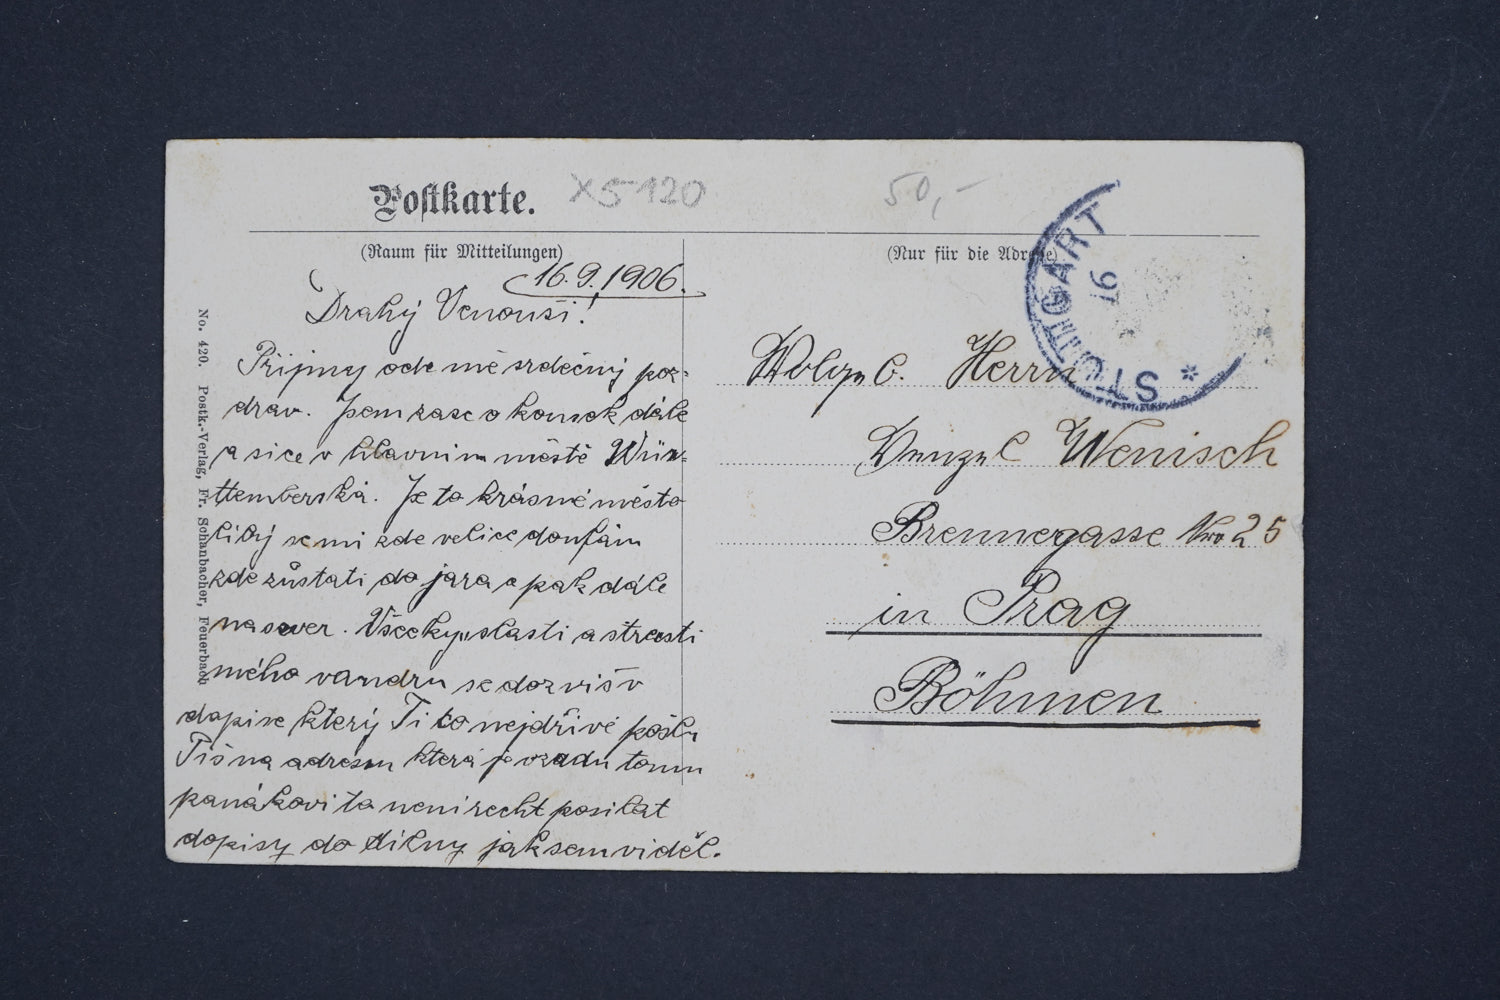 Postkarte.
X5120
50,-
(Raum für Mitteilungen)
(Nur für die Adresse)
STUTTGART
16
*
16.9.1906.
Drahý Venouši!
Přijmy ode mě srdečný poz-
drav. Jsem zase o kousek dále
a sice v hlavním městě Würt-
ttemberská. Je to krásné město
líbý se mi zde velice doufám
zde zůstati do jara a pak dále
na sever. Všecky slasti a strasti
mého vandru se dozvíš v
dopise který Ti co nejdříve pošlu
Piš na adresu která je vzadu tomu
panákovi to není recht posílat
dopisy do dílny jak sem viděl.
Wolg. b. Herrn
Wenzel Wenisch
Brennegasse Nro 25
in Prag
Böhmen
No. 420. Postk.-Verlag, Fr. Schanbacher, Feuerbach